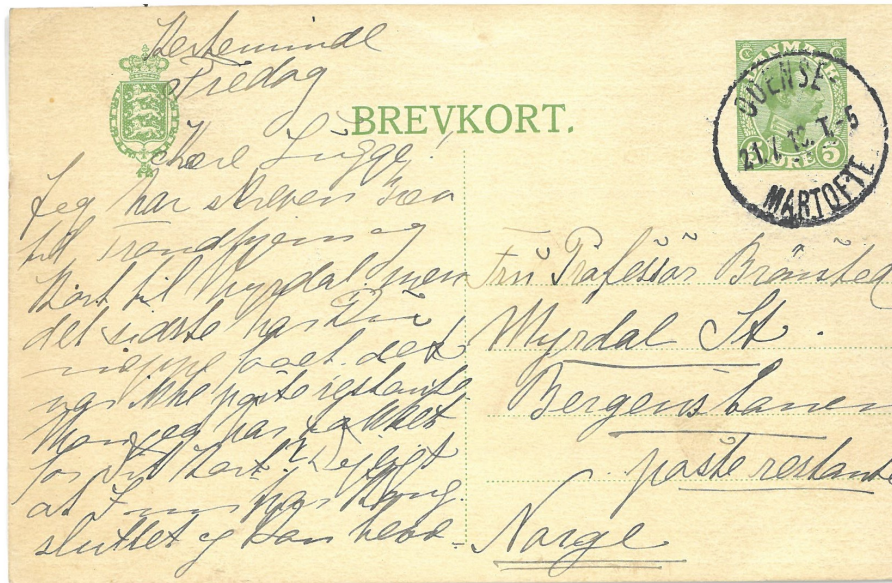 Kerteminde
Fredag
BREVKORT.
Kære Lugge!
Jeg har skreven Brev
til Trondhjem og
Kort til Myrdal, men
det sidste har Du
næppe faaet, det
var ikke poste restante.
Mon jeg har takket
for Dit Kort? Dejligt
at I nu har Krig
sluttet og kan leve
DANMARK
5 ØRE 5
ODENSE
21.7.13. T. 5
MARTOFTE
Fru Professor Brønsted
Myrdal St.
Bergensbanen
poste restante
Norge